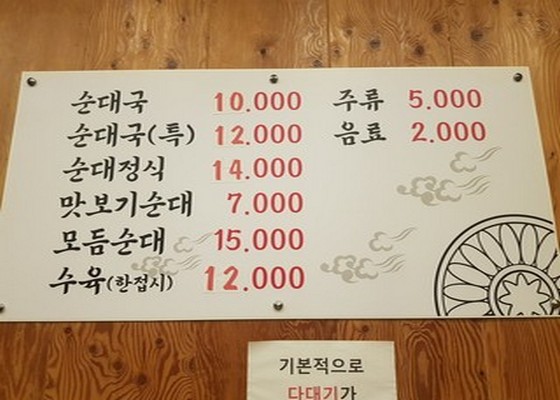 순대국 10.000
순대국(특) 12.000
순대정식 14.000
맛보기순대 7.000
모듬순대 15.000
수육(한접시) 12.000
주류 5.000
음료 2.000
기본적으로
다대기가